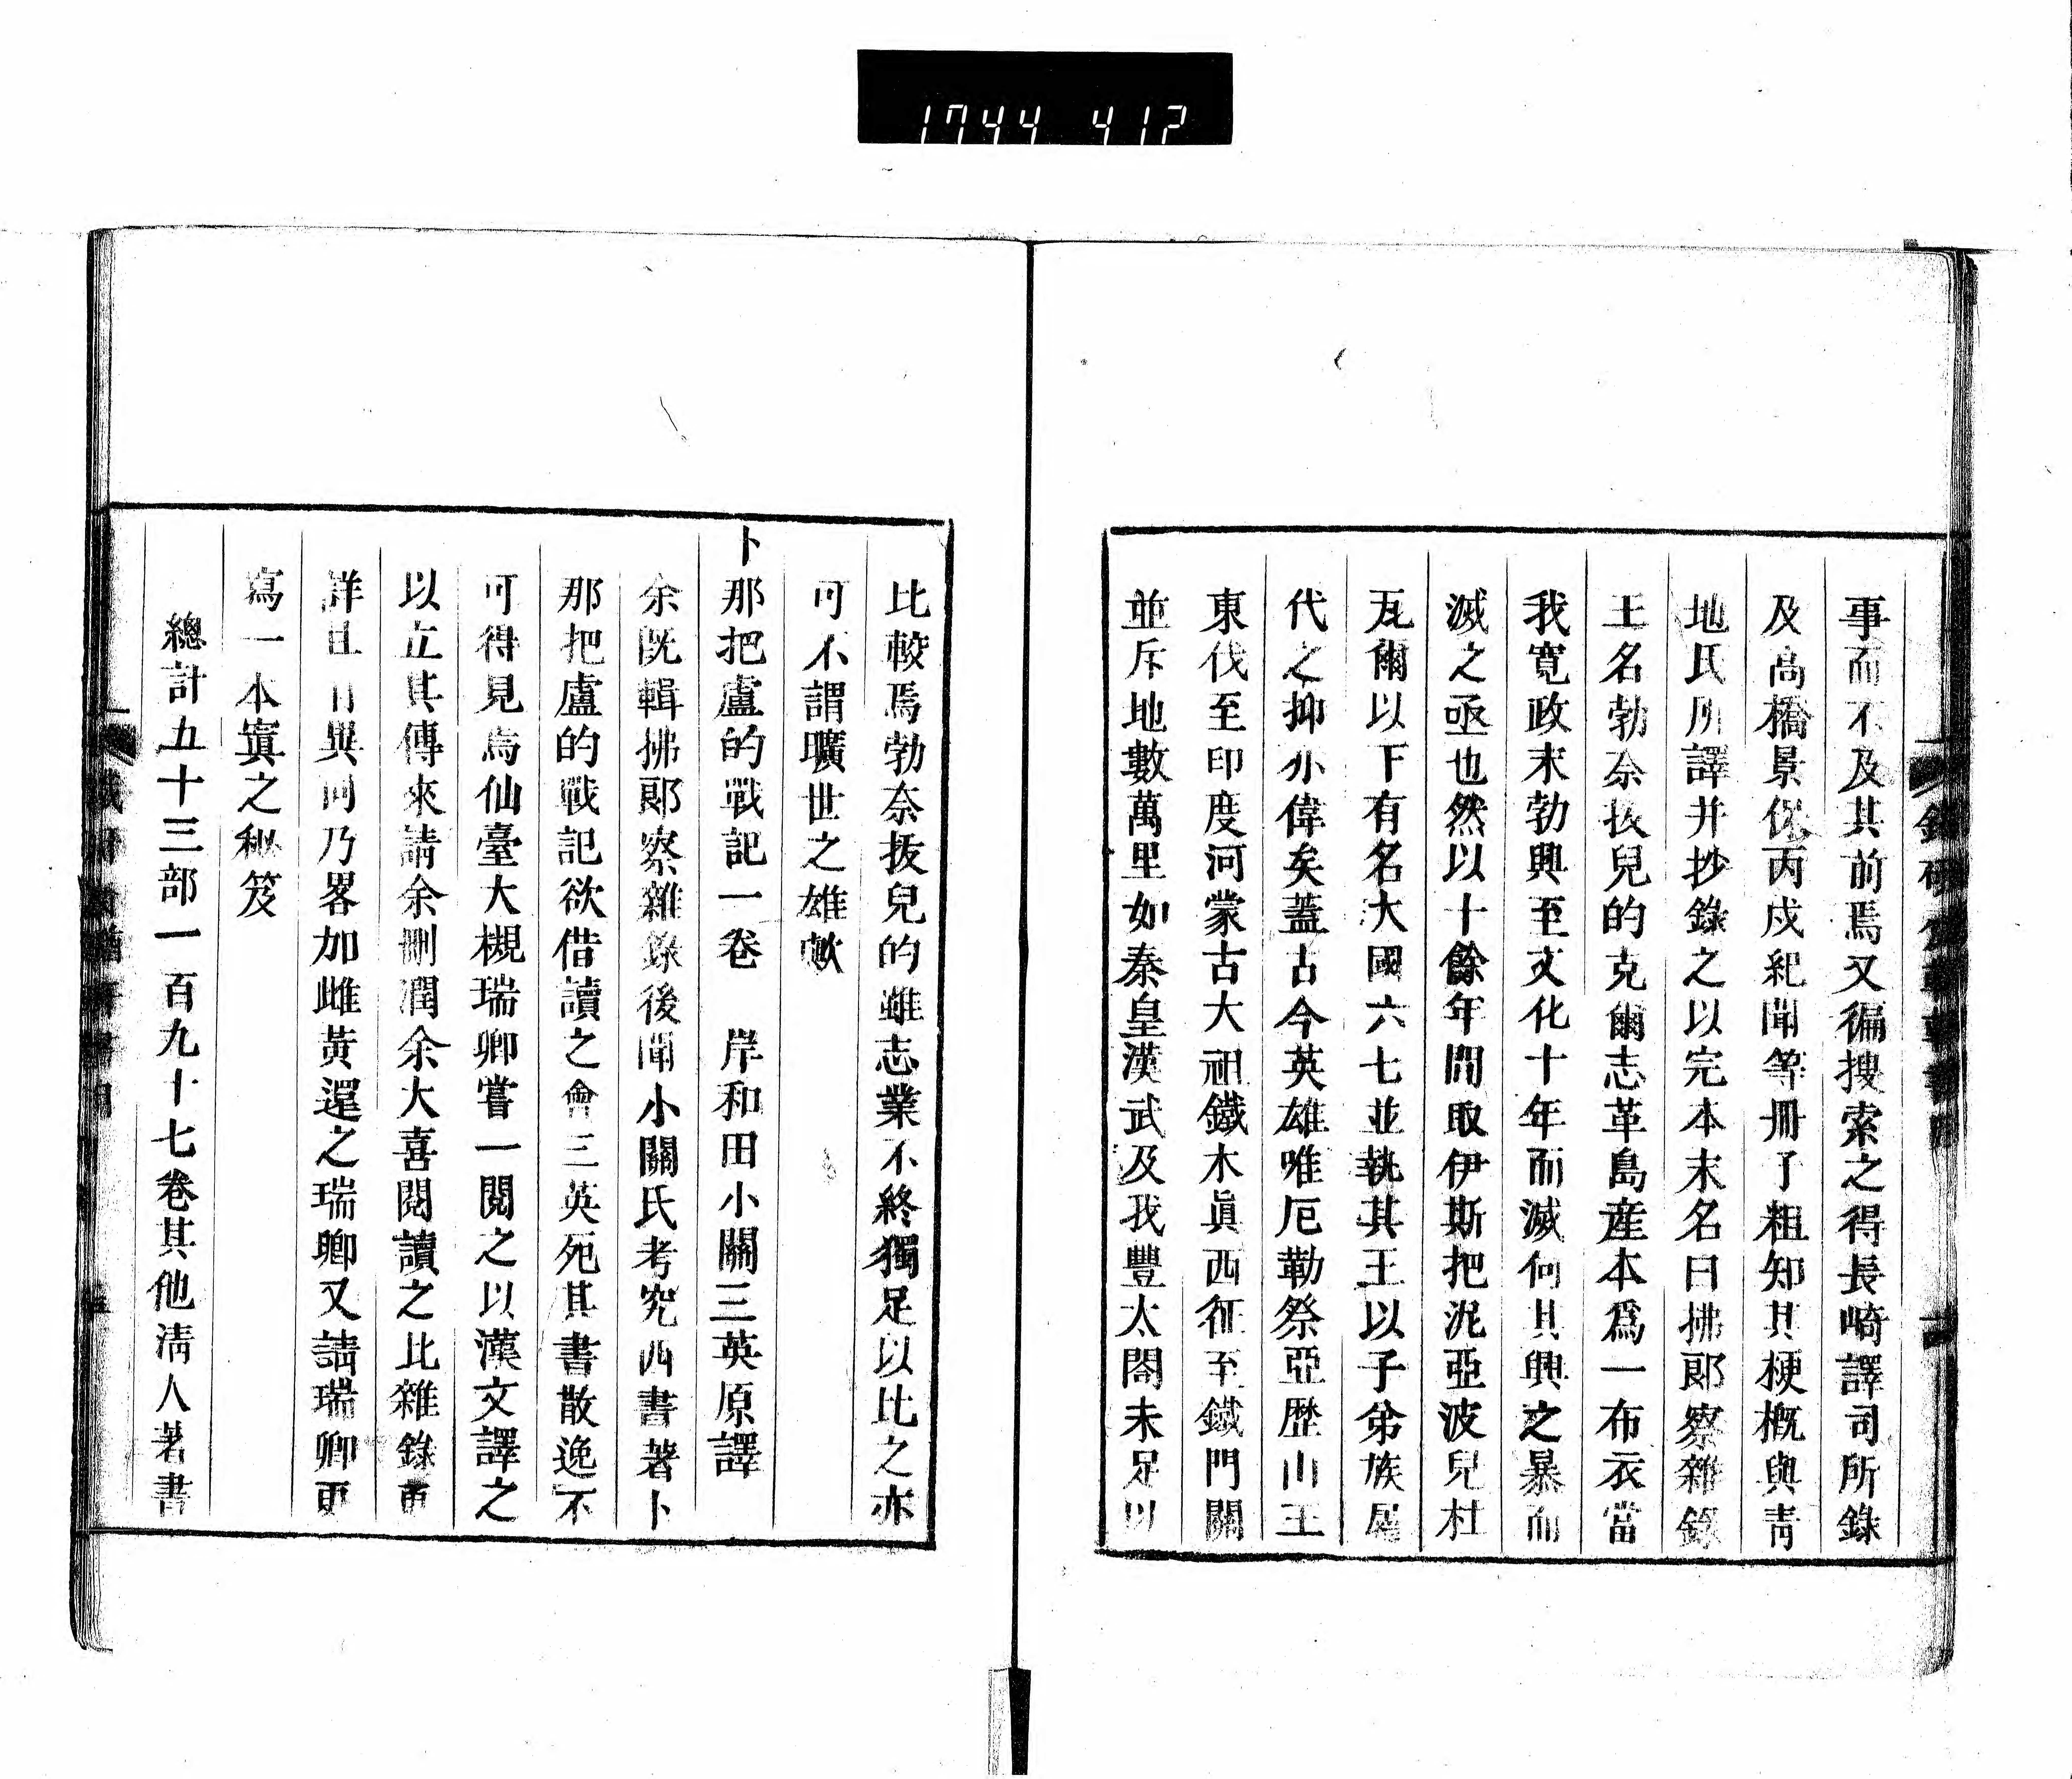 1744 412
事而不及其前焉又徧搜索之得長崎譯司所錄
及高橋景保丙戌紀聞等冊子粗知其梗概與靑
地氏所譯并抄錄之以完本末名曰拂郎察雜錄
王名勃奈抜兒的克爾志革島産本爲一布衣當
我寛政末勃興至文化十年而滅何其興之暴而
滅之亟也然以十餘年間取伊斯把泥亞波兒杜
瓦爾以下有名大國六七並執其王以子弟族屬
代之抑亦偉矣蓋古今英雄唯厄勒祭亞歴山王
東伐至印度河蒙古大祖鐵木眞西征至鐵門關
並斥地數萬里如秦皇漢武及我豐太閤未足以
比較焉勃奈抜兒的雖志業不終獨足以比之亦
可不謂曠世之雄歟
卜那把盧的戰記一卷 岸和田小關三英原譯
余既輯拂郎察雜錄後聞小關氏考究西書著卜
那把盧的戰記欲借讀之會三英死其書散逸不
可得見焉仙臺大槻瑞卿嘗一閲之以漢文譯之
以立其傳來請余刪潤余大喜閲讀之比雜錄更
詳且有異同乃畧加雌黄還之瑞卿又請瑞卿更
寫一本寘之秘笈
總計五十三部一百九十七卷其他淸人著書